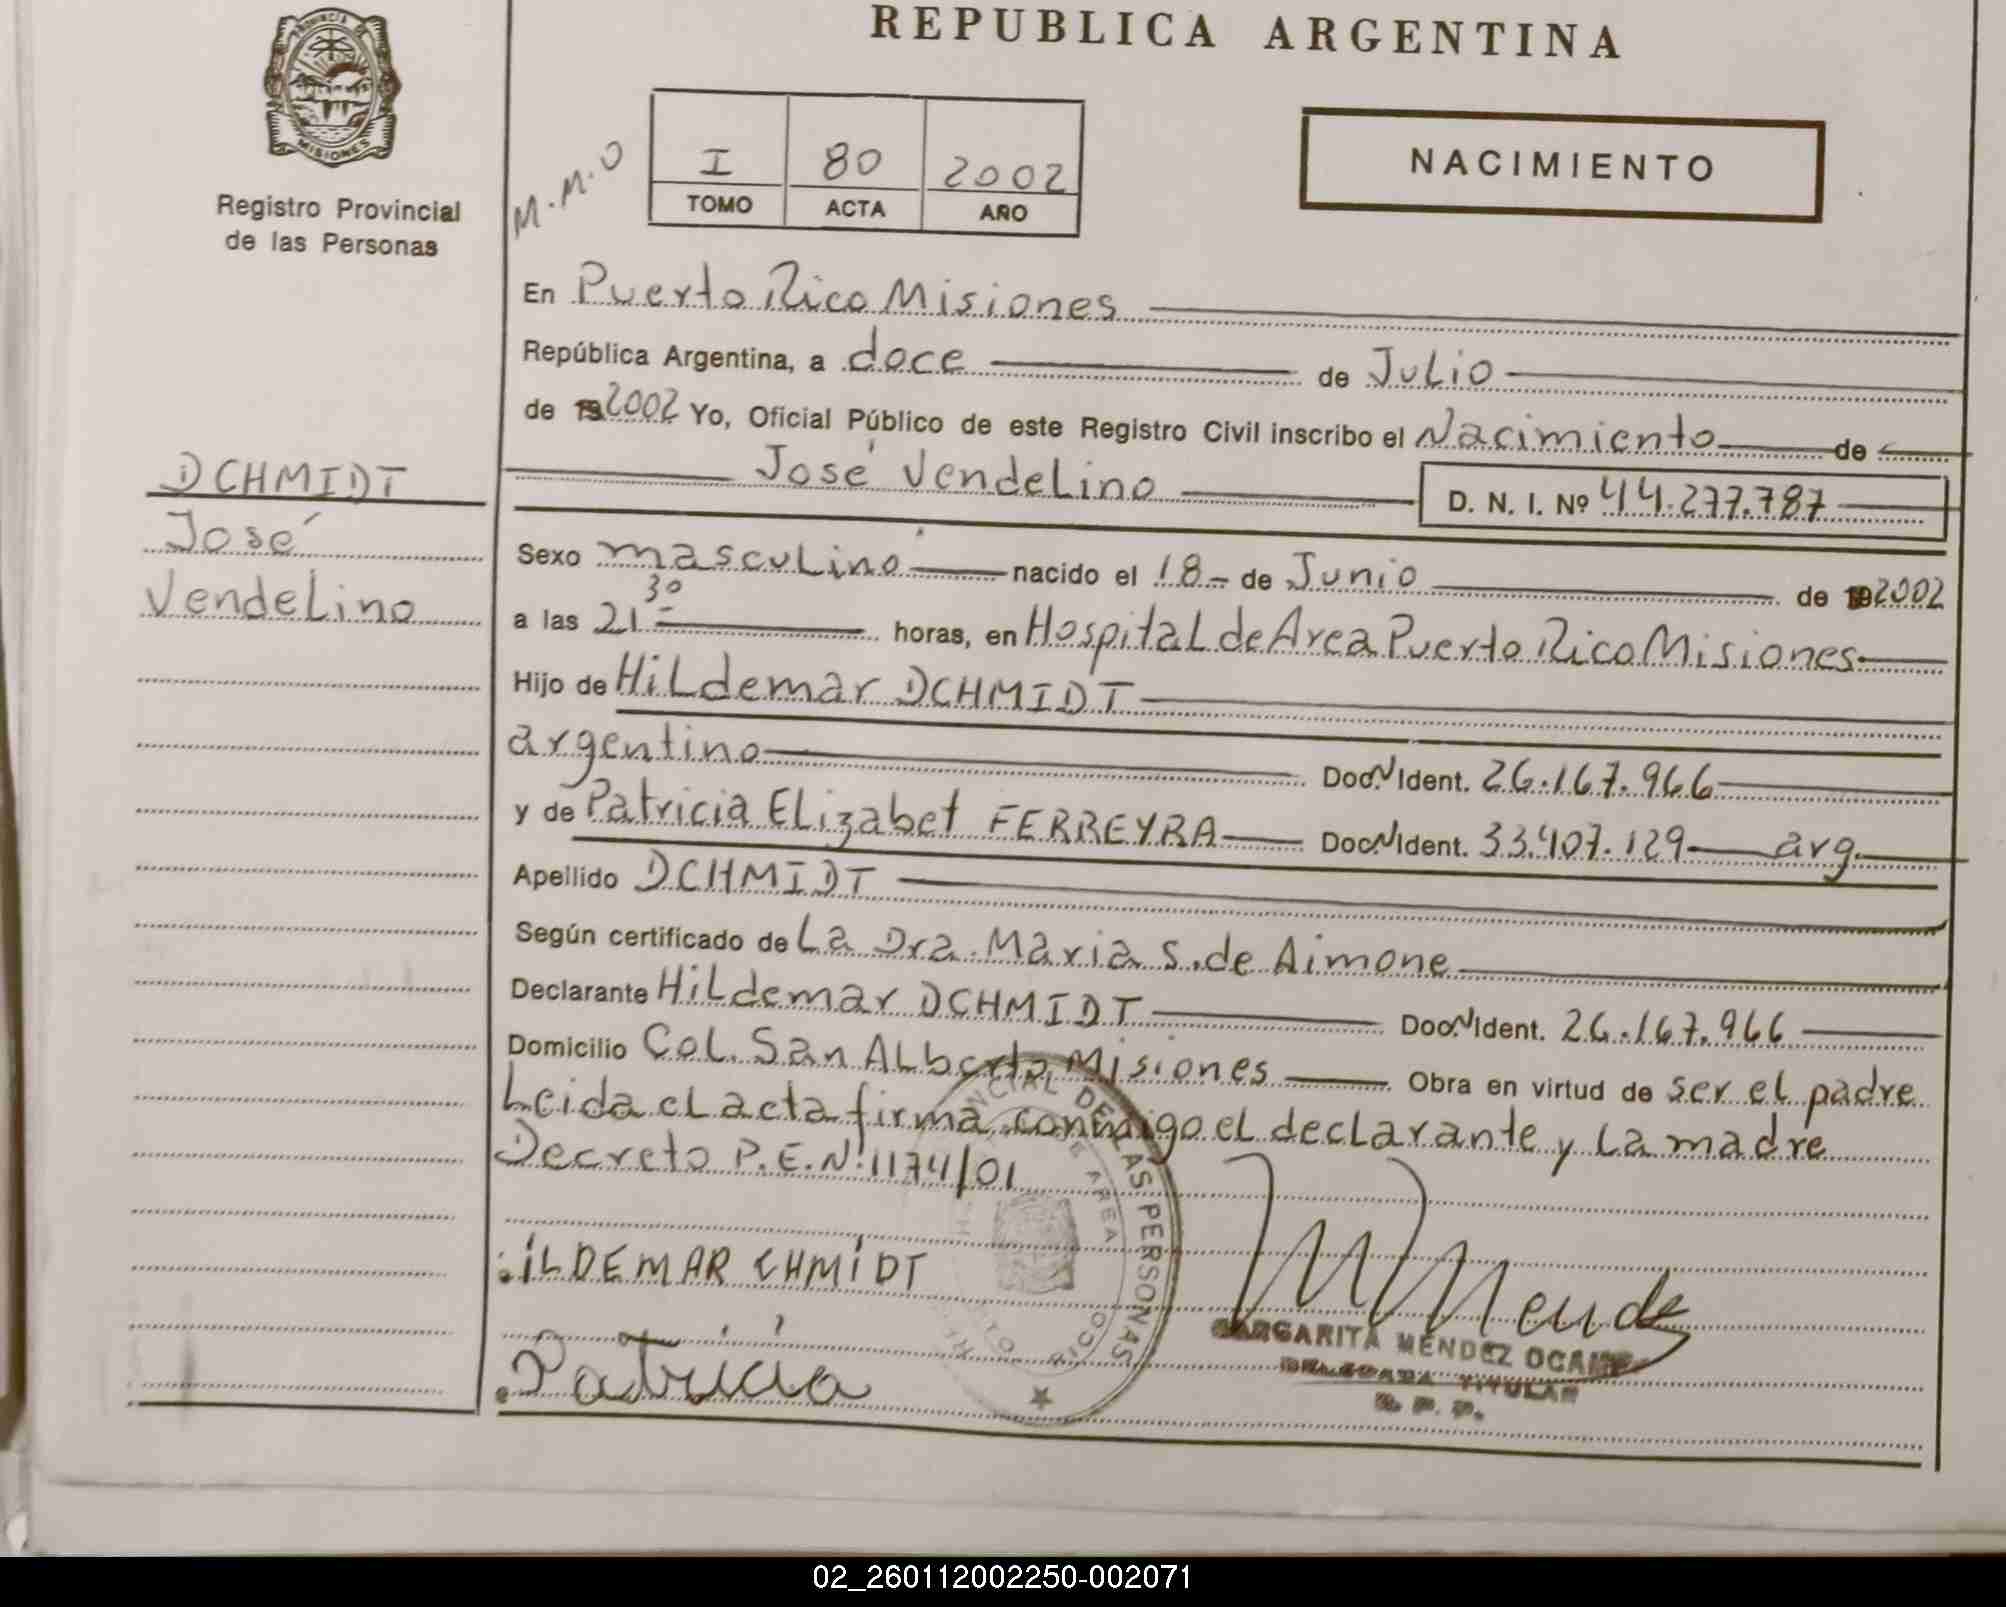 REPUBLICA ARGENTINA
PROVINCIA DE
MISIONES
Registro Provincial
de las Personas
M.M.O
I 80 2002
TOMO ACTA AÑO
NACIMIENTO
En Puerto Rico Misiones
República Argentina, a doce de Julio
de 192002 Yo, Oficial Público de este Registro Civil inscribo el Nacimiento de
José Vendelino D. N. I. Nº 44.277.787
DCHMIDT
José
Vendelino
Sexo masculino nacido el 18 de Junio de 192002
a las 21 30 horas, en Hospital de Area Puerto Rico Misiones
Hijo de HiLdemar DCHMIDT
argentino Doc.N Ident. 26.167.966
y de Patricia Elizabet FERREYRA Doc.N Ident. 33.407.129 arg.
Apellido DCHMIDT
Según certificado de La Dra. Maria S. de Aimone
Declarante HiLdemar DCHMIDT Doc.N Ident. 26.167.966
Domicilio Col. San Alberto Misiones Obra en virtud de ser el padre
Leida el acta firma conmigo el declarante y la madre
Decreto P.E.N. 1174/01
NCIAL DE LAS PERSONAS
AREA
RICO
iLDEMAR CHMiDT
Patricia
MMendez
MARGARITA MÉNDEZ OCAMPO
DELEGADA TITULAR
R. P. P.
02_260112002250-002071